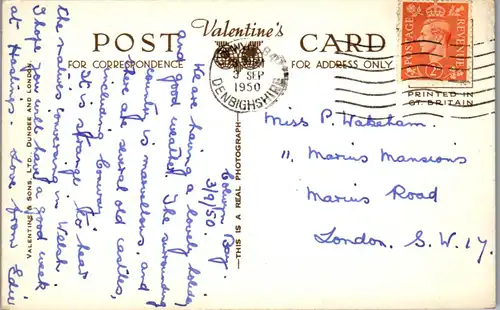 POST
Valentine's
CARD
FOR CORRESPONDENCE
FOR ADDRESS ONLY
SEP
1950
DENBIGHSHIRE
POSTAGE
REVENUE
PRINTED IN
GT. BRITAIN
Colwyn Bay.
3/9/50.
We are having a lovely holiday
and good weather. The surrounding
country is marvellous, and
there are several old castles,
including Conway.
It is strange to hear
the natives conversing in Welsh.
I hope you'll have a good week
at Hastings. Love from Edie
Miss P. Wakeham.
11, Marius Mansions
Marius Road
London. S.W.17.
—THIS IS A REAL PHOTOGRAPH—
VALENTINE & SONS, LTD., DUNDEE AND LONDON